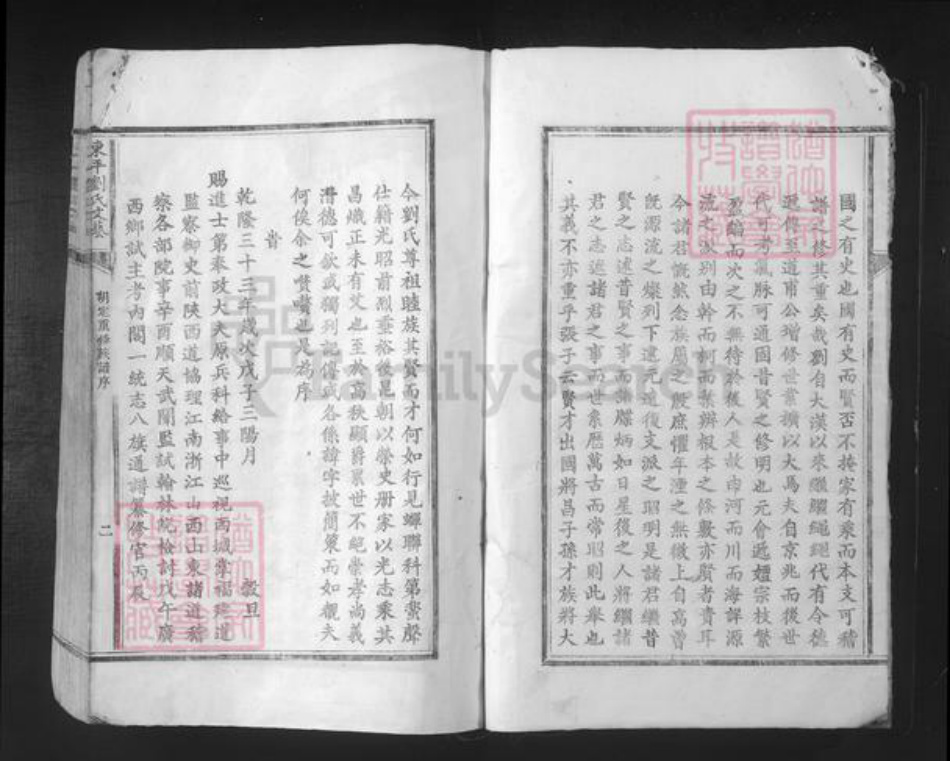 國之有史也國有史而賢否不掩家有乘而本支可稽
譜之修其重矣哉劉自大漢以來繼繼繩繩代有令德
遞傳至道甫公增修世業擴以大焉夫自京兆而後世
代可考氣脉可通固昔賢之修明也元會遞嬗宗枝繁
盈編而次之不無待於後人是故由河而川而海詳源
流之以別由幹而柯而葉辨根本之條數亦賢者責耳
今諸君慨然念族屬之殷庶懼年湮之無徵上自高曾
既源流之燦列下逮元遠復支派之昭明是諸君繼昔
賢之志述昔賢之事而譜牒炳如日星後之人將繼諸
君之志述諸君之事而世系歷萬古而常昭則此舉也
其義不亦重乎張子云賢才出國將昌子孫才族將大
今劉氏尊祖睦族其賢而才何如行見蟬聯科第蜚聲
仕籍光昭前烈垂裕後昆朝以榮史册家以光志乘其
昌熾正未有艾也至於高秩顯爵累世不絕崇孝尚義
潛德可欽或獨列記傳或各係諱字披簡策而如覩夫
何俟余之贊是為序
旹
乾隆三十三年歲次戊子三陽月 穀旦
賜進士第奉政大夫原兵科給事中巡視西城掌福建道
監察御史前陝西道協理江南浙江山西山東諸道稽
察各部院事辛酉順天武闈監試翰林院檢討戊午廣
西鄉試主考內閣一統志八旗道譜纂修官丙辰
東平劉氏文藝
重修族譜序
二
FamilySearch